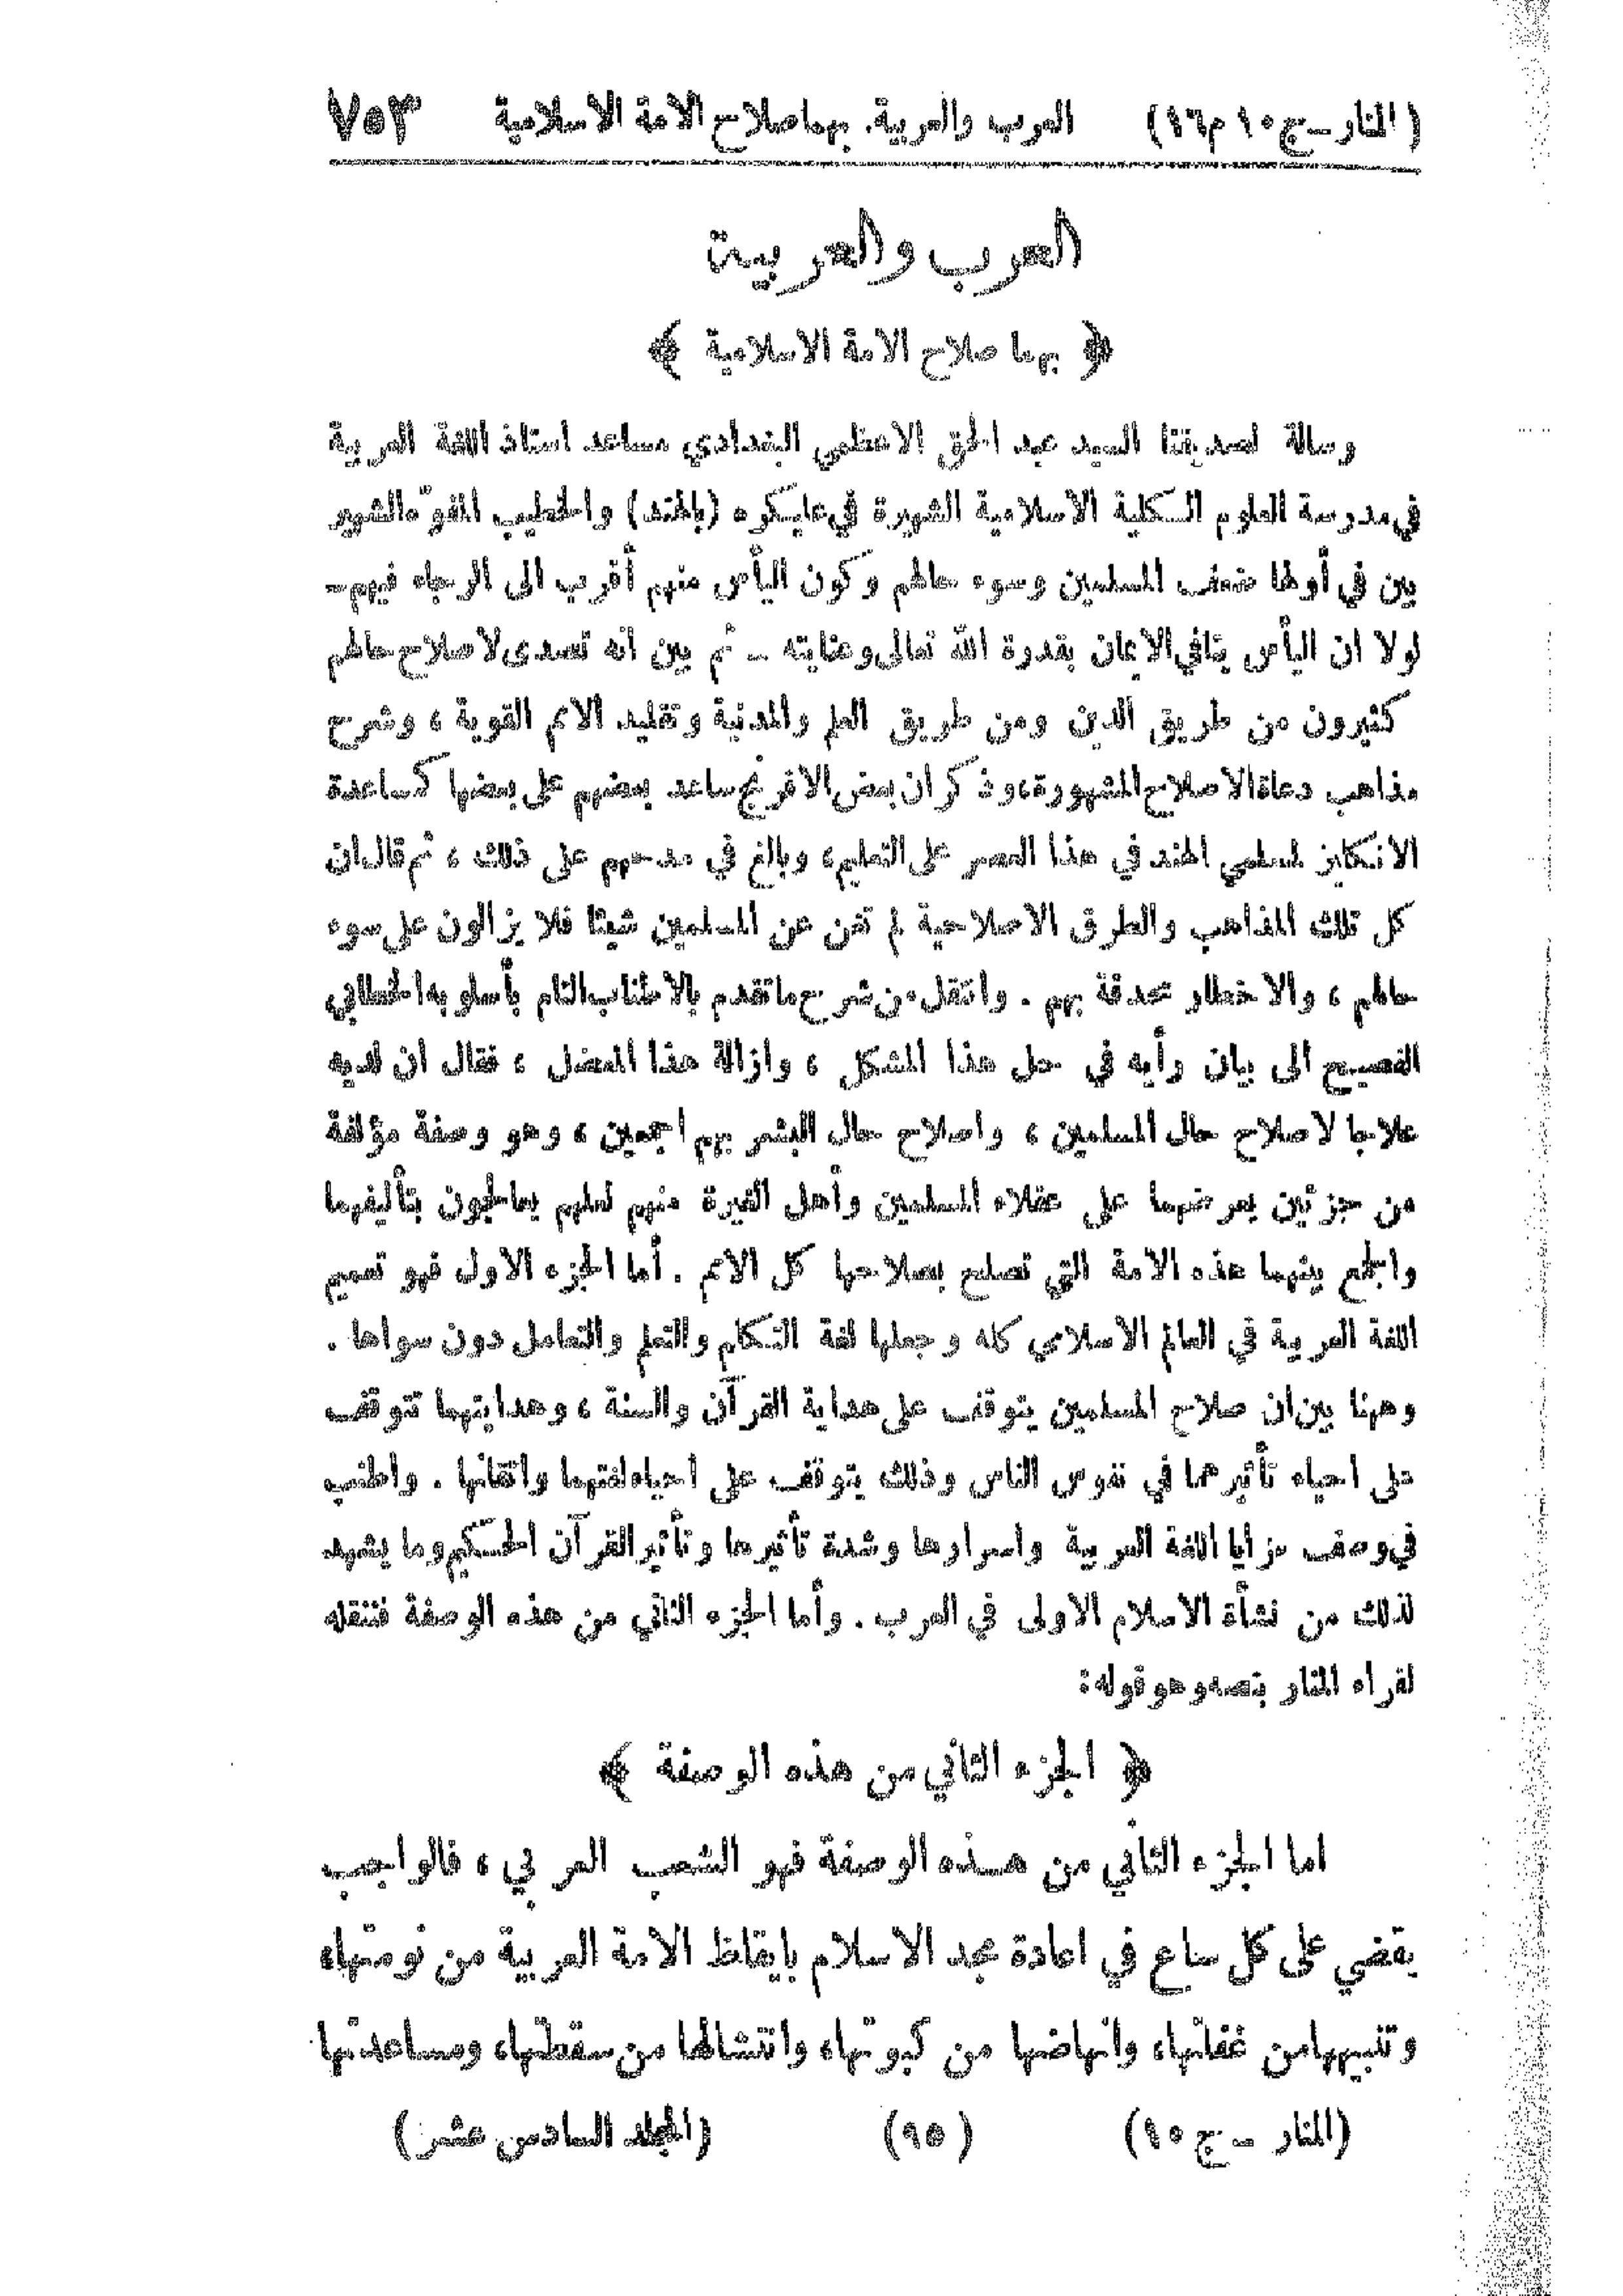 (المنار–ج١٠ م١٦) العرب والعربية. بهما صلاح الامة الاسلامية ٧٥٣
العرب والعربية
﴿ بهما صلاح الامة الاسلامية ﴾
رسالة لصديقنا السيد عبد الحق الاعظمي البغدادي مساعد استاذ اللغة العربية
في مدرسة العلوم الكلية الاسلامية الشهيرة في عليكره (بالهند) والخطيب المفوّه الشهير
بين في أولها ضعف المسلمين وسوء حالهم وكون اليأس منهم أقرب الى الرجاء فيهم–
لولا ان اليأس ينافي الايمان بقدرة الله تعالى وعنايته – ثم بين أنه تصدى لاصلاح حالهم
كثيرون من طريق الدين ومن طريق العلم والمدنية وتقليد الامم القوية ، وشرح
مذاهب دعاة الاصلاح المشهورة، وذكر ان بعض الافرنج ساعد بعضهم على بعضها كمساعدة
الانكليز لمسلمي الهند في هذا العصر على التعليم، وبالغ في مدحهم على ذلك ، ثم قال ان
كل تلك المذاهب والطرق الاصلاحية لم تغن عن المسلمين شيئا فلا يزالون على سوء
حالهم ، والاخطار محدقة بهم . وانتقل من شرح ما تقدم بالاطناب التام بأسلوبه الخطابي
الفصيح الى بيان رأيه في حل هذا المشكل ، وازالة هذا المعضل ، فقال ان لديه
علاجا لاصلاح حال المسلمين ، واصلاح حال البشر بهم اجمعين ، وهو وصفة مؤلفة
من جزئين يعرضهما على عقلاء المسلمين وأهل الغيرة منهم لعلهم يعالجون بتأليفهما
والجمع بينهما هذه الامة التي تصلح بصلاحها كل الامم . أما الجزء الاول فهو تعميم
اللغة العربية في العالم الاسلامي كله وجعلها لغة التكلم والتعلم والتعامل دون سواها .
وههنا بين ان صلاح المسلمين يتوقف على هداية القرآن والسنة ، وهدايتهما تتوقف
على احياء تأثيرهما في نفوس الناس وذلك يتوقف على احياء لغتهما واتقانها . واطنب
في وصف مزايا اللغة العربية واسرارها وشدة تأثيرها وتأثير القرآن الحكيم وما يشهد
لذلك من نشأة الاسلام الاولى في العرب . وأما الجزء الثاني من هذه الوصفة فننقله
لقراء المنار بنصه وهو قوله:
﴿ الجزء الثاني من هذه الوصفة ﴾
اما الجزء الثاني من هذه الوصفة فهو الشعب العربي ، فالواجب
يقضي على كل ساع في اعادة مجد الاسلام بايقاظ الامة العربية من نومتها،
وتنبيهها من غفلتها، وانهاضها من كبوتها، وانتشالها من سقطتها، ومساعدتها
(المنار – ج ١٠) (٩٥) (المجلد السادس عشر)